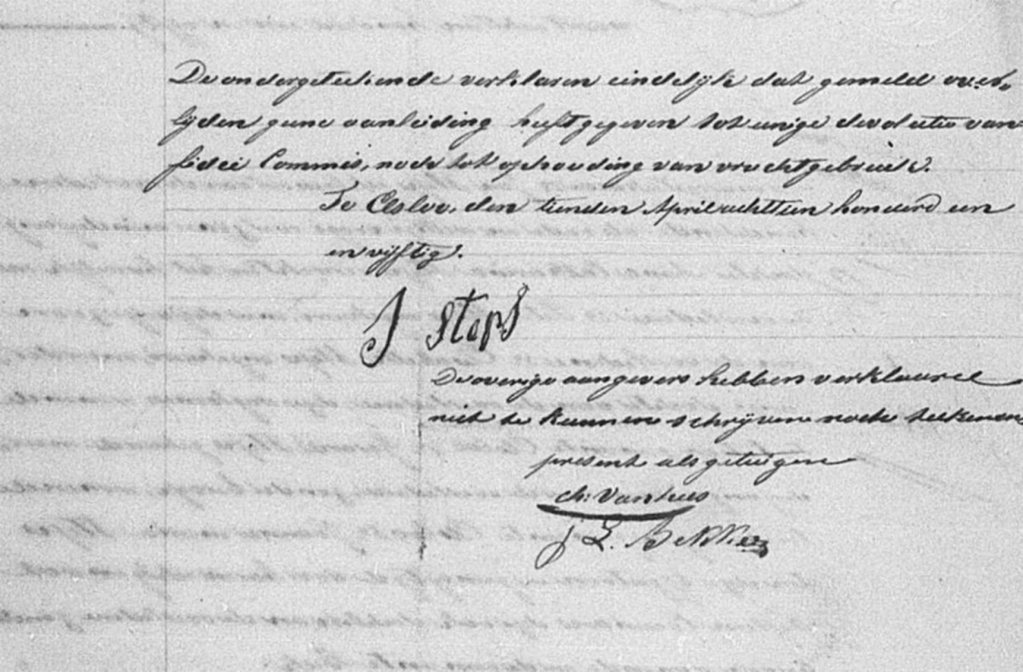 De ondergeteekende verklaren eindelijk dat gemeld over-
lijden geene aanleiding heeft gegeven tot eenige devolutie van
fidei Commis, noch tot ophouding van vruchtgebruik.
Te Elsloo, den tienden April achttien honderd een
en vijftig.
J Steps
De overige aangevers hebben verklaard
niet te kunnen schrijven noch teekenen
present als getuigen
J L. Bekker